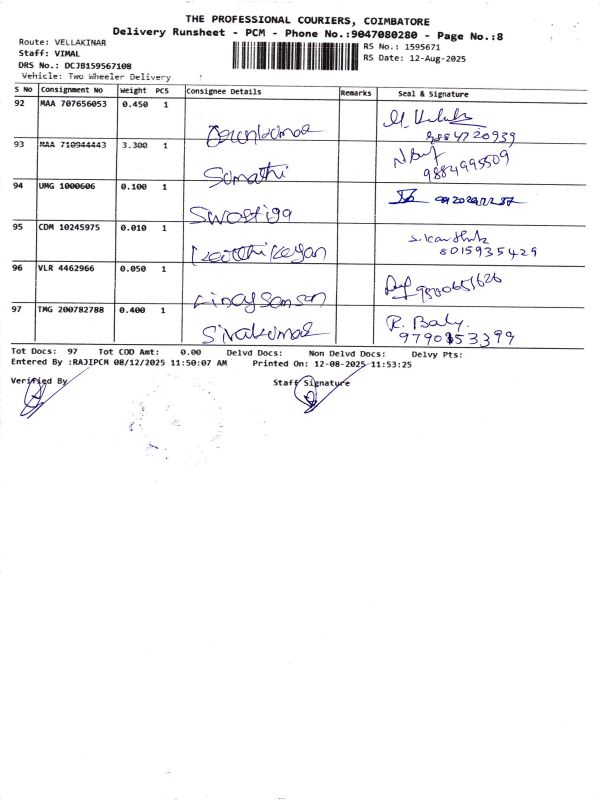 THE PROFESSIONAL COURIERS, COIMBATORE
Delivery Runsheet - PCM - Phone No.:9047080280 - Page No.:8
Route: VELLAKINAR
RS No.: 1595671
Staff: VIMAL
DRS No.: DCJB159567108
RS Date: 12-Aug-2025
Vehicle: Two Wheeler Delivery
S No Consignment No Weight PCS Consignee Details Remarks Seal & Signature
92 MAA 707656053 0.450 1
9884720939
93 MAA 710944443 3.300 1 Sumathi
9884995509
94 UMG 1000606 0.100 1 Swastiga
95 CDM 10245975 0.010 1 Keerthikeyan
S. Karthik
8015935429
96 VLR 4462966 0.050 1
97 TMG 200782788 0.400 1 Sivakumar
R. Balu.
9790853399
Tot Docs: 97 Tot COD Amt: 0.00 Delvd Docs: Non Delvd Docs: Delvy Pts:
Entered By :RAJIPCM 08/12/2025 11:50:07 AM Printed On: 12-08-2025 11:53:25
Verified By Staff Signature